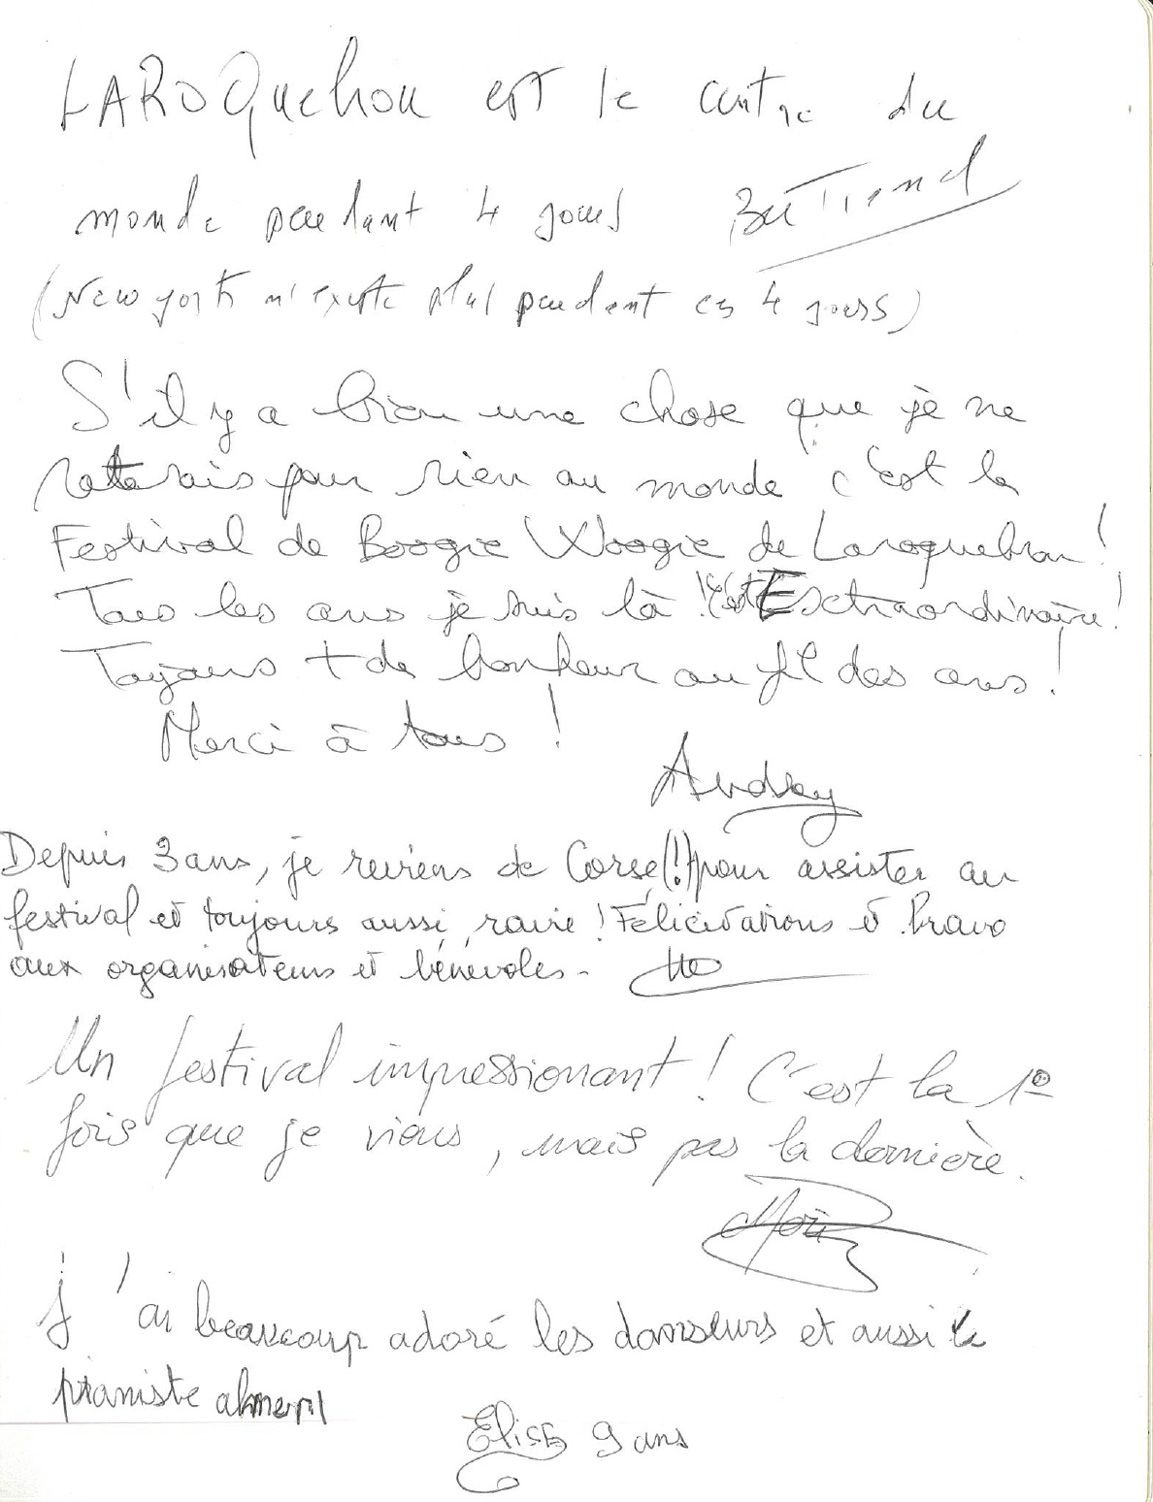 LAROQuebrou est le centre du
monde pendant 4 jours Bertrand
(New york n'existe plus pendant ces 4 jours)
S'il y a bien une chose que je ne
raterais pour rien au monde c'est le
Festival de Boogie Woogie de Laroquebrou!
Tous les ans je suis là! C'est Extraordinaire!
Toujours + de bonheur au fil des ans!
Merci à tous!
Audrey
Depuis 3 ans, je reviens de Corse(!) pour assister au
festival et toujours aussi ravie! Félicitations et bravo
aux organisateurs et bénévoles -
Un festival impressionant! C'est la 1º
fois que je viens, mais pas la dernière.
J'ai beaucoup adoré les danseurs et aussi le
pianiste
Elise 9 ans